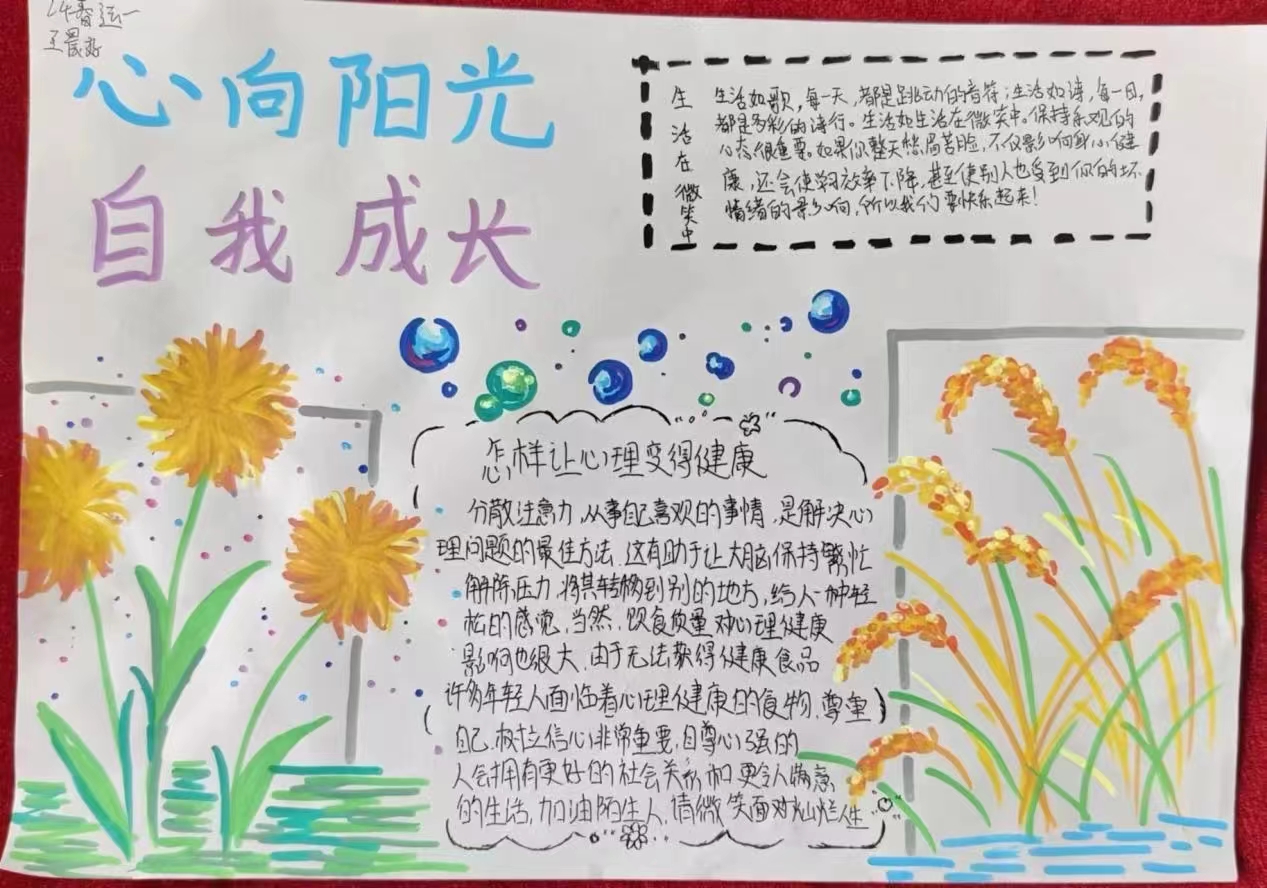 24春运一
王晨好
心向阳光
自我成长
生活在微笑中
生活如歌，每一天，都是跳动的音符；生活如诗，每一日，
都是多彩的诗行。生活如生活在微笑中。保持乐观的
心态很重要。如果你整天愁眉苦脸，不仅影响身心健
康，还会使学习效率下降，甚至使别人也受到你的坏
情绪的影响，所以我们要快乐起来！
怎样让心理变得健康
分散注意力，从事自己喜欢的事情，是解决心
理问题的最佳方法，这有助于让大脑保持繁忙
解除压力，将其转移到别的地方，给人一种轻
松的感觉，当然，饮食质量对心理健康
影响也很大，由于无法获得健康食品
许多年轻人面临着心理健康的食物，尊重
自己，树立信心非常重要，自尊心强的
人会拥有更好的社会关系和更令人满意
的生活，加油陌生人，请微笑面对灿烂人生